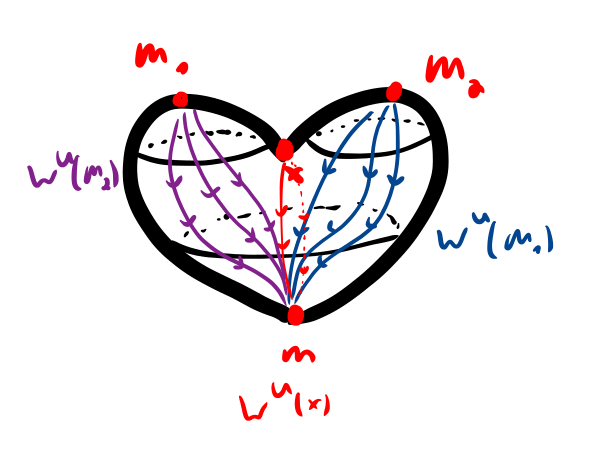 m₁
m₂
x
Wᵘ(m₂)
Wᵘ(m₁)
m
Wᵘ(x)